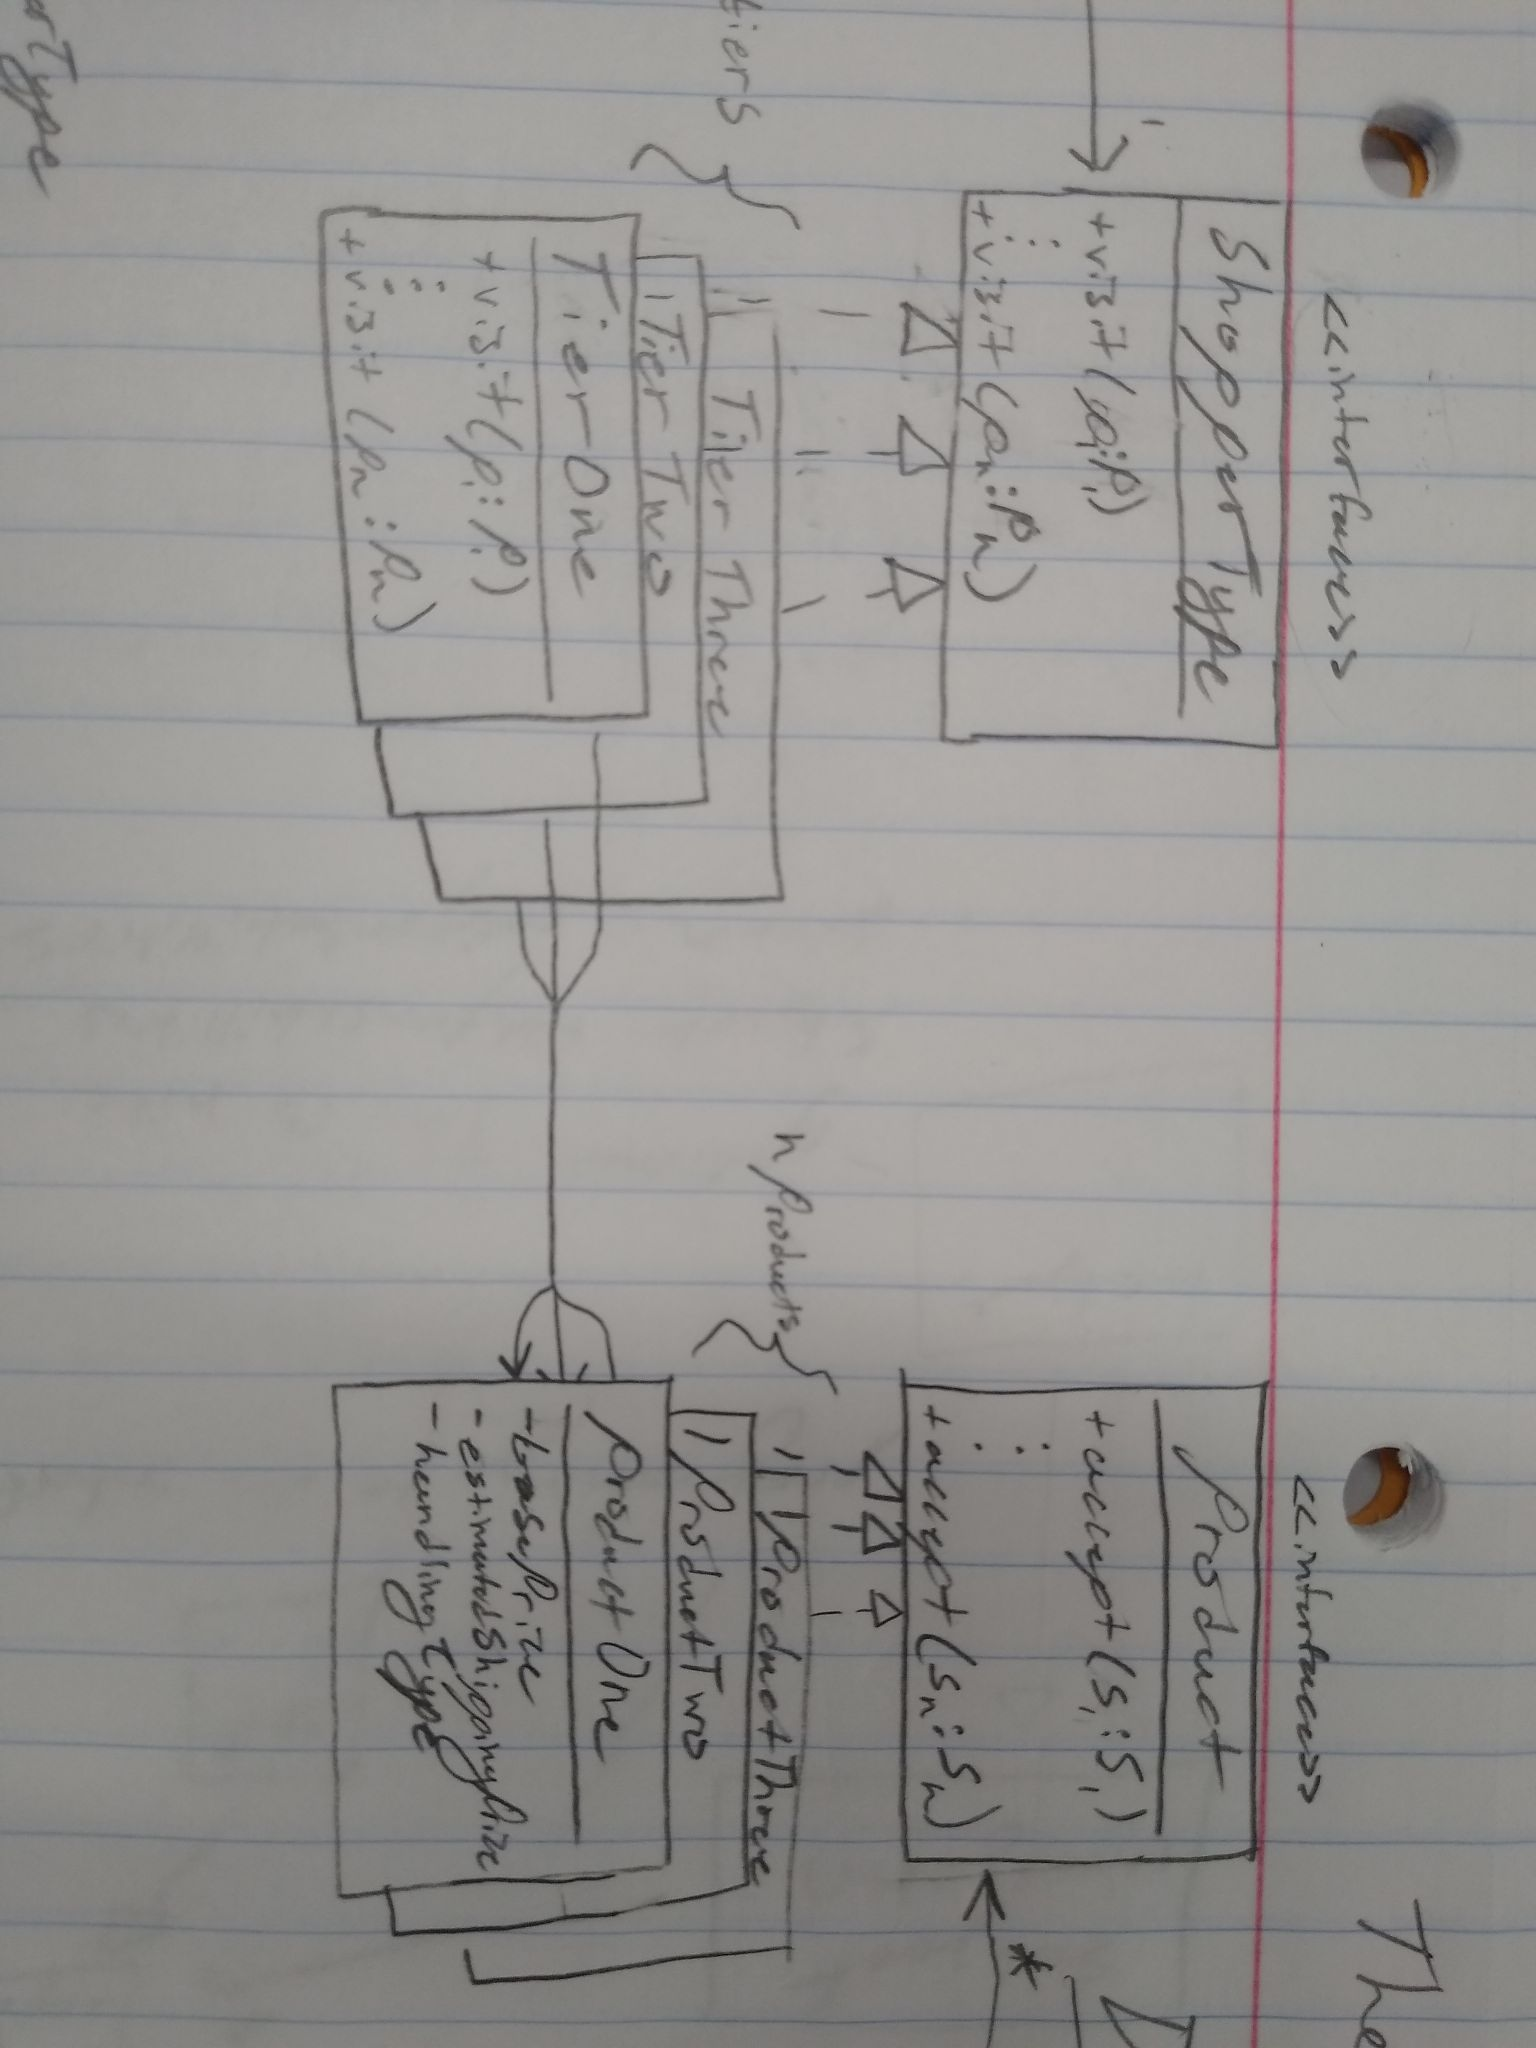 <<interface>>
ShopperType
+visit(p₁:P₁)
⋮
+visit(pₙ:Pₙ)
tiers
Tier Three
Tier Two
Tier One
+visit(p₁:P₁)
⋮
+visit(pₙ:Pₙ)
<<interface>>
Product
+accept(s₁:S₁)
⋮
+accept(sₙ:Sₙ)
n Products
Product Three
Product Two
Product One
-basePrice
-estimatedShippingPrice
-handlingType
The
*
erType